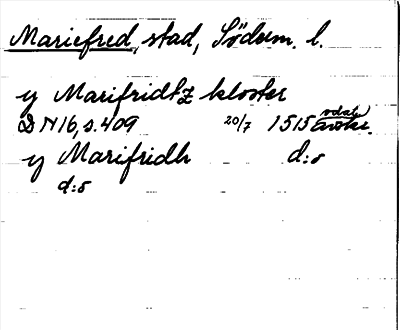 Mariefred, stad, Söderm. l.
y Marifridhz kloster
D N 16, s. 409 20/7 1515 odat. avskr.
y Marifridh d:o
d:o